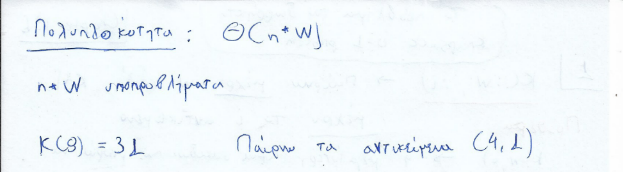 Πολυπλοκότητα : Θ(n*W)
n*W υποπροβλήματα
K(9) = 31 Παίρνω τα αντικείμενα (4, 1)